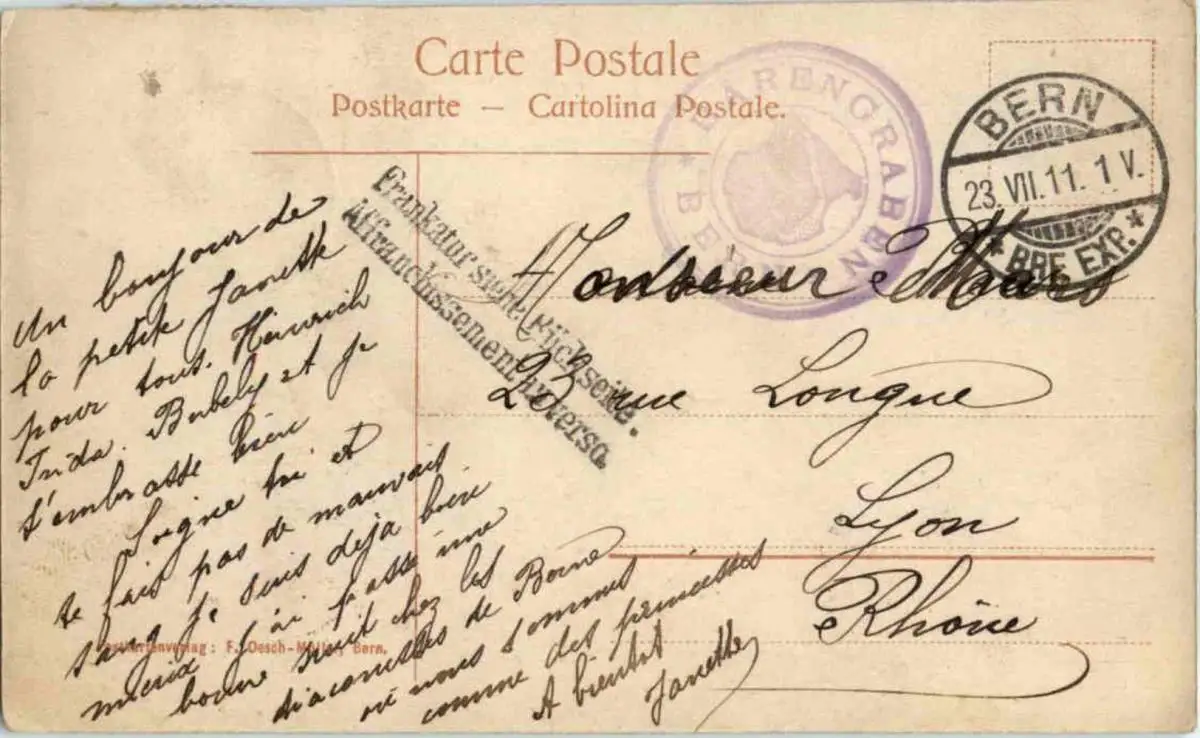 Carte Postale
Postkarte — Cartolina Postale.
BÄRENGRABEN
BERN
BERN
23. VII. 11. 1 V.
* BRF. EXP. *
Frankatur siehe Rückseite.
Affranchissement au verso.
Monsieur
23 rue Longue
Lyon
Rhône
Un bonjour de
la petite Janette
pour tous. Heinrich
Frida. Bubely et je
t'embrasse bien
Soigne toi et
te fais pas de mauvais
sang je suis déjà bien
mieux j'ai passé une
bonne nuit chez les
diaconisses de Berne
où nous sommes
comme des princesses
A bientôt
Janette
Postkartenverlag: F. Oesch-Müller, Bern.